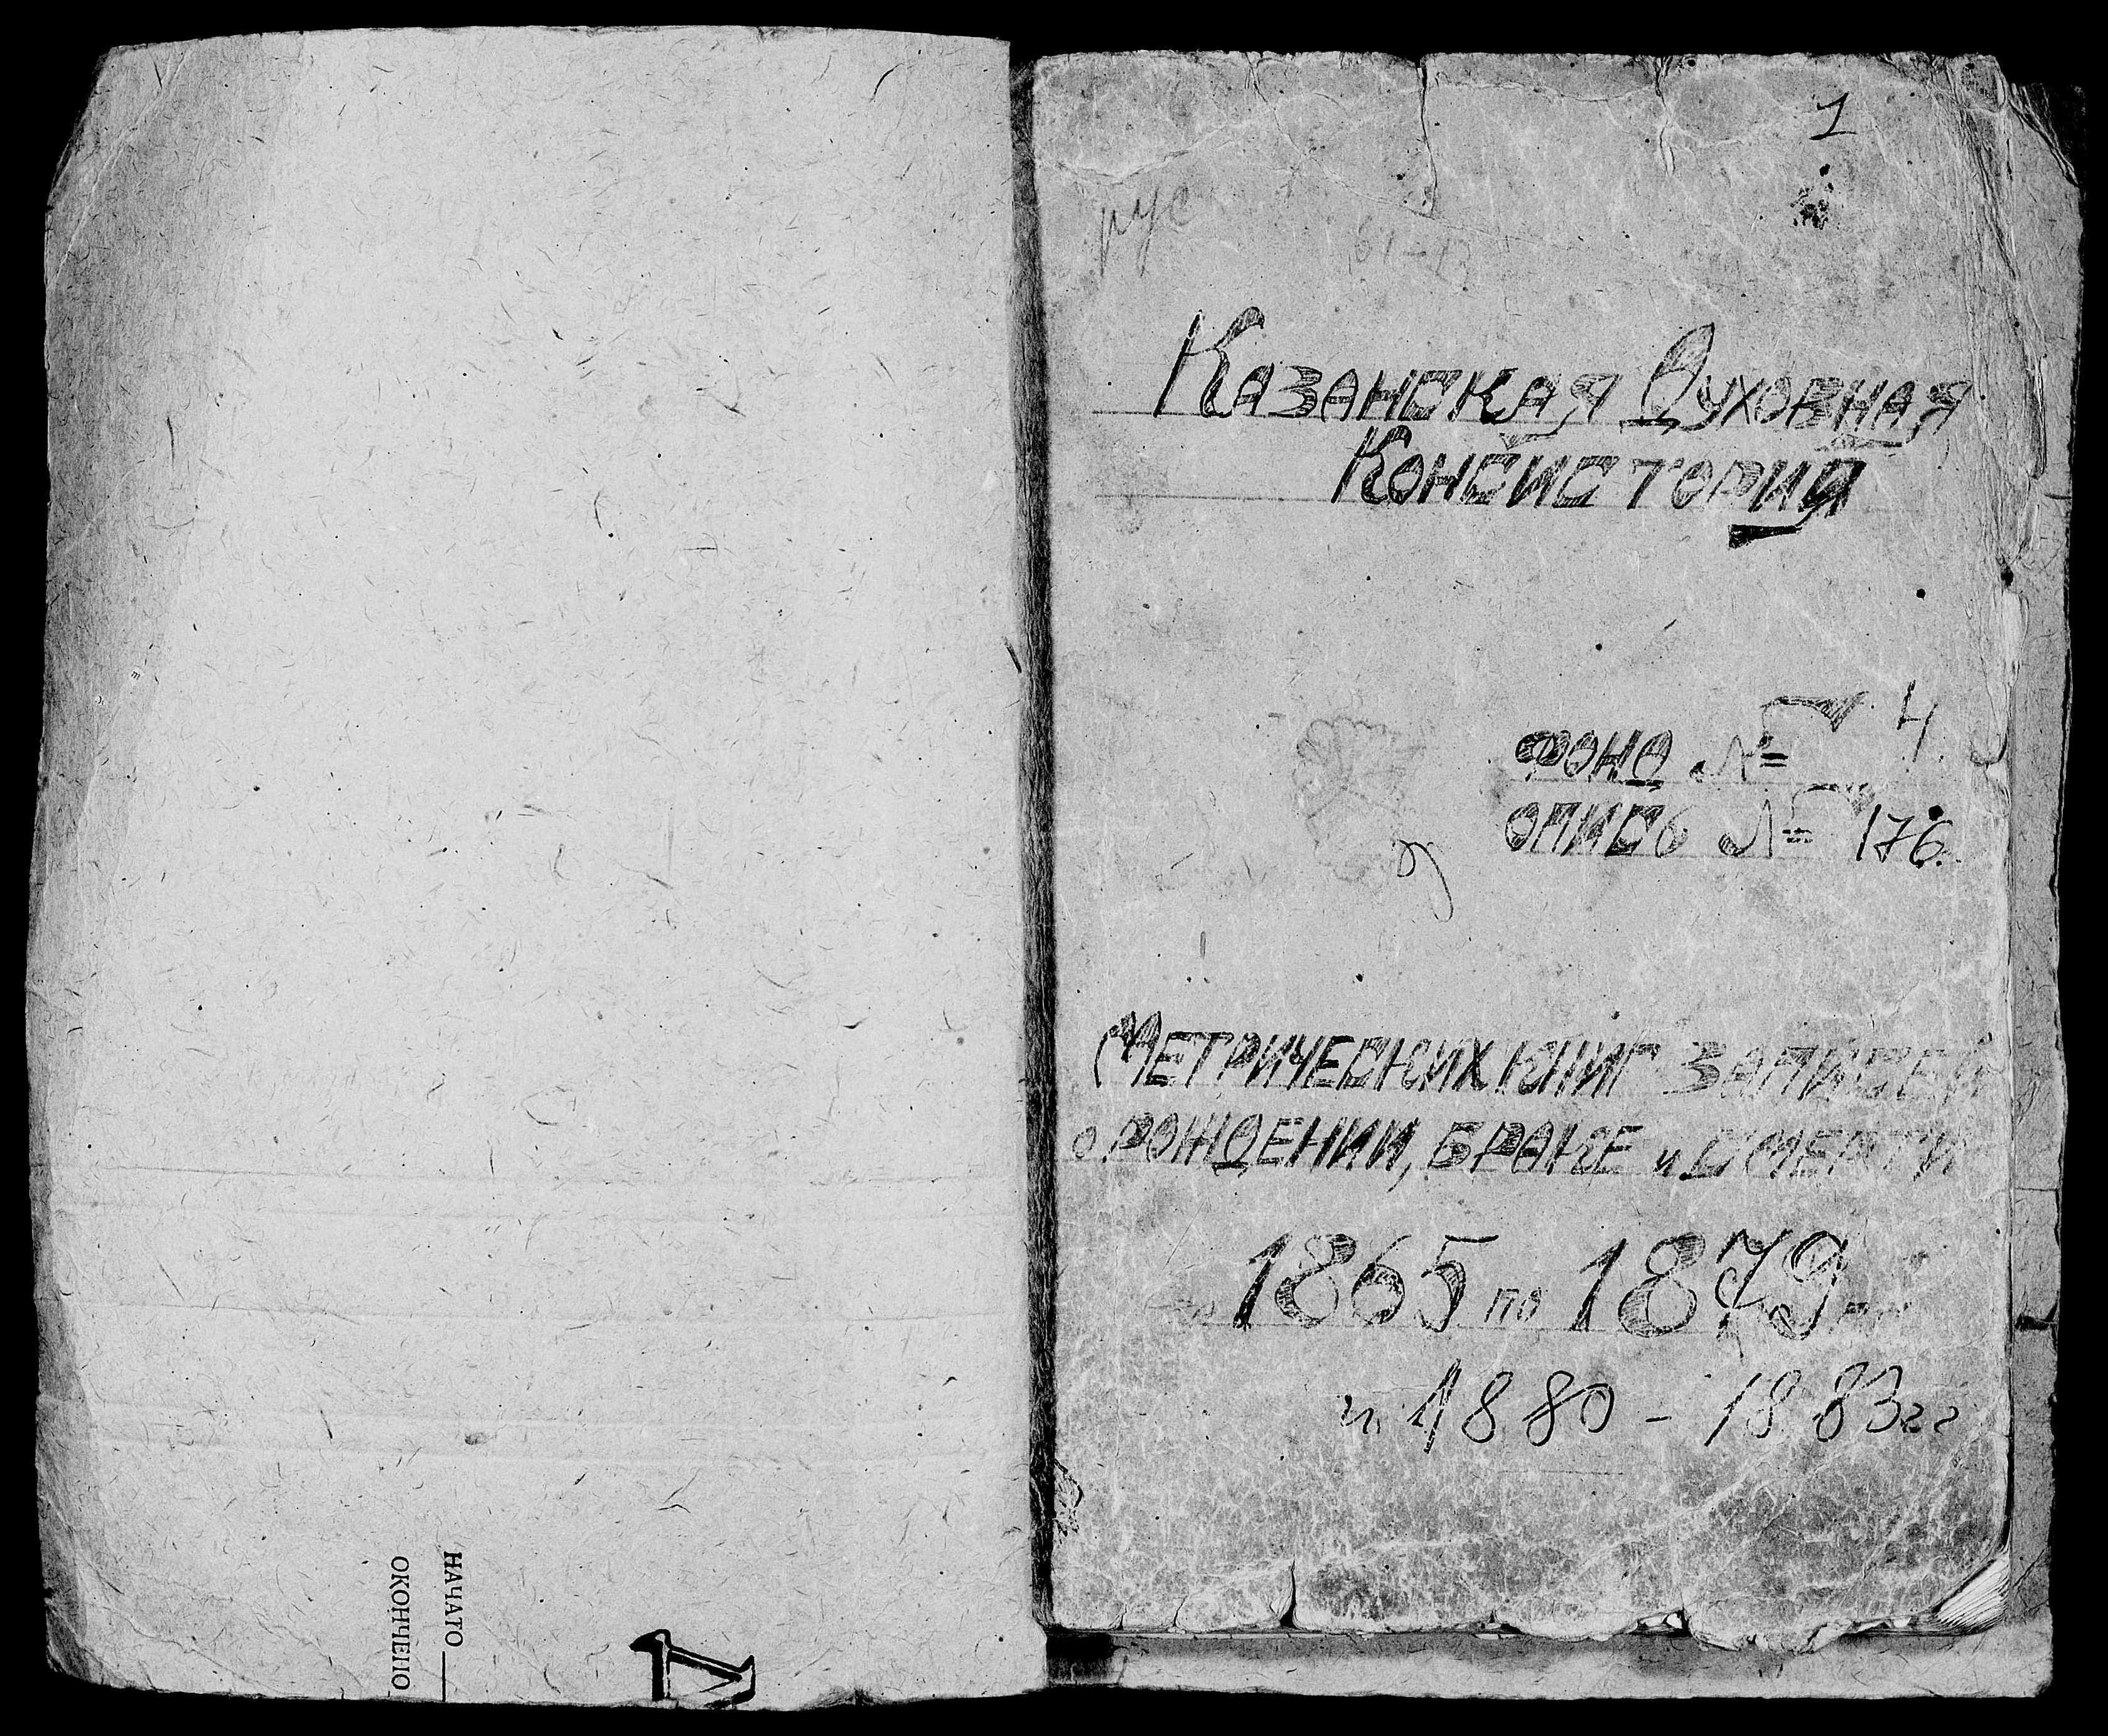 НАЧАТО
ОКОНЧЕНО
1
рус
Казанская Духовная
Консистория
ФОНД № 4.
ОПИСЬ № 176.
МЕТРИЧЕСКИХ КНИГ ЗАПИСЕЙ
о РОЖДЕНИИ, БРАКЕ и СМЕРТИ
1865 по 1879
и 1880 - 1883 гг